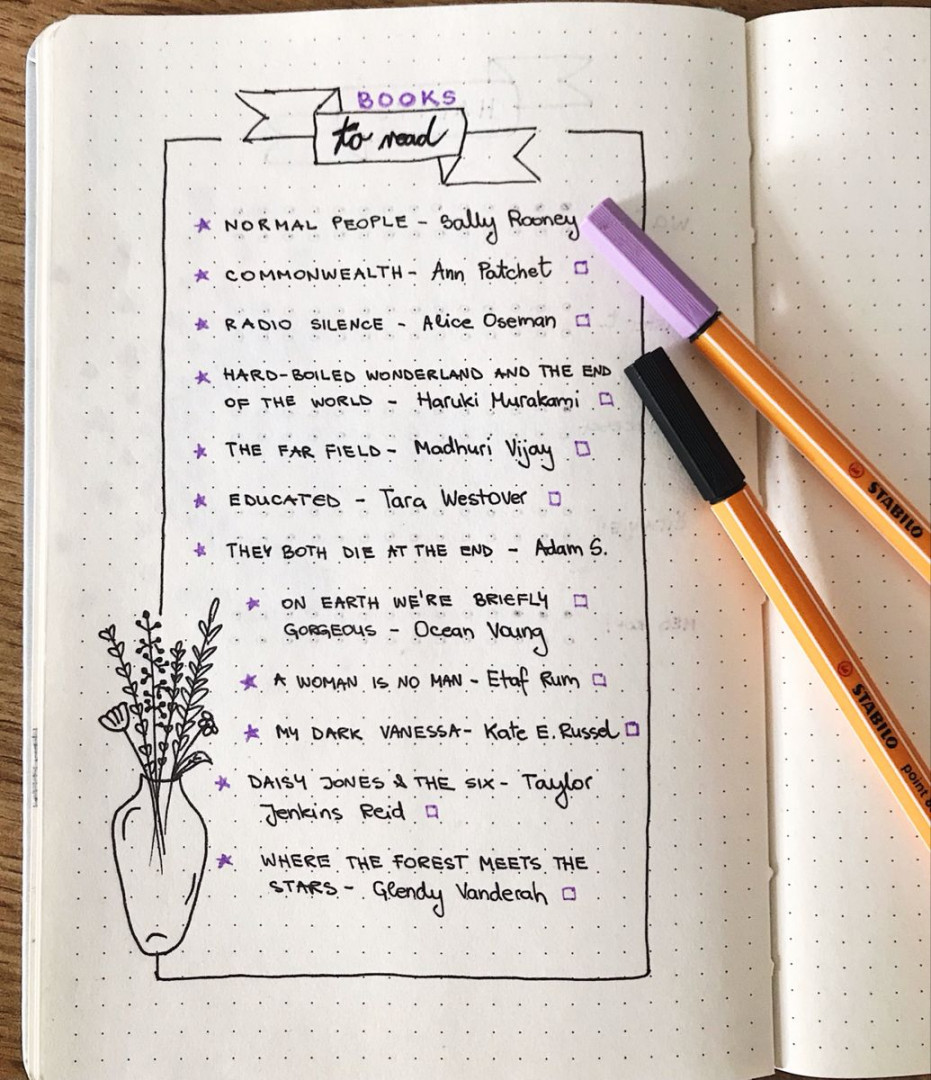 BOOKS
to read
NORMAL PEOPLE - Sally Rooney
COMMONWEALTH - Ann Patchet
RADIO SILENCE - Alice Oseman
HARD-BOILED WONDERLAND AND THE END
OF THE WORLD - Haruki Murakami
THE FAR FIELD - Madhuri Vijay
EDUCATED - Tara Westover
THEY BOTH DIE AT THE END - Adam S.
ON EARTH WE'RE BRIEFLY
GORGEOUS - Ocean Voung
A WOMAN IS NO MAN - Etaf Rum
MY DARK VANESSA - Kate E. Russel
DAISY JONES & THE SIX - Taylor
Jenkins Reid
WHERE THE FOREST MEETS THE
STARS - Glendy Vanderah
STABILO
STABILO point